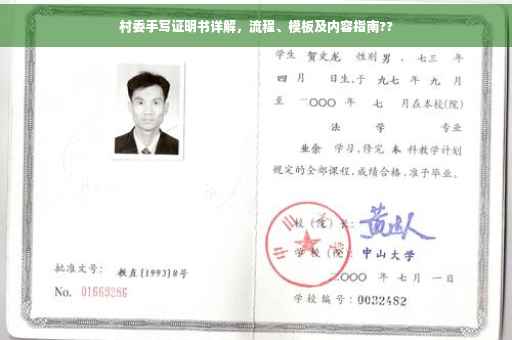 村委手写证明书详解，流程、模板及内容指南??
学生 贺文龙 性别 男 ，七三 年
四 月 日生，于 九七 年 九 月
至 二〇〇〇 年 七 月在本校(院)
法 学 专业
业余 学习，修完 本 科教学计划
规定的全部课程，成绩合格，准予毕业。
校(院)长：
学校(院)： 中山大学
二〇〇〇 年 七 月 一 日
批准文号： 教直[1993]8号
No. 01663286
学校编号：0032482